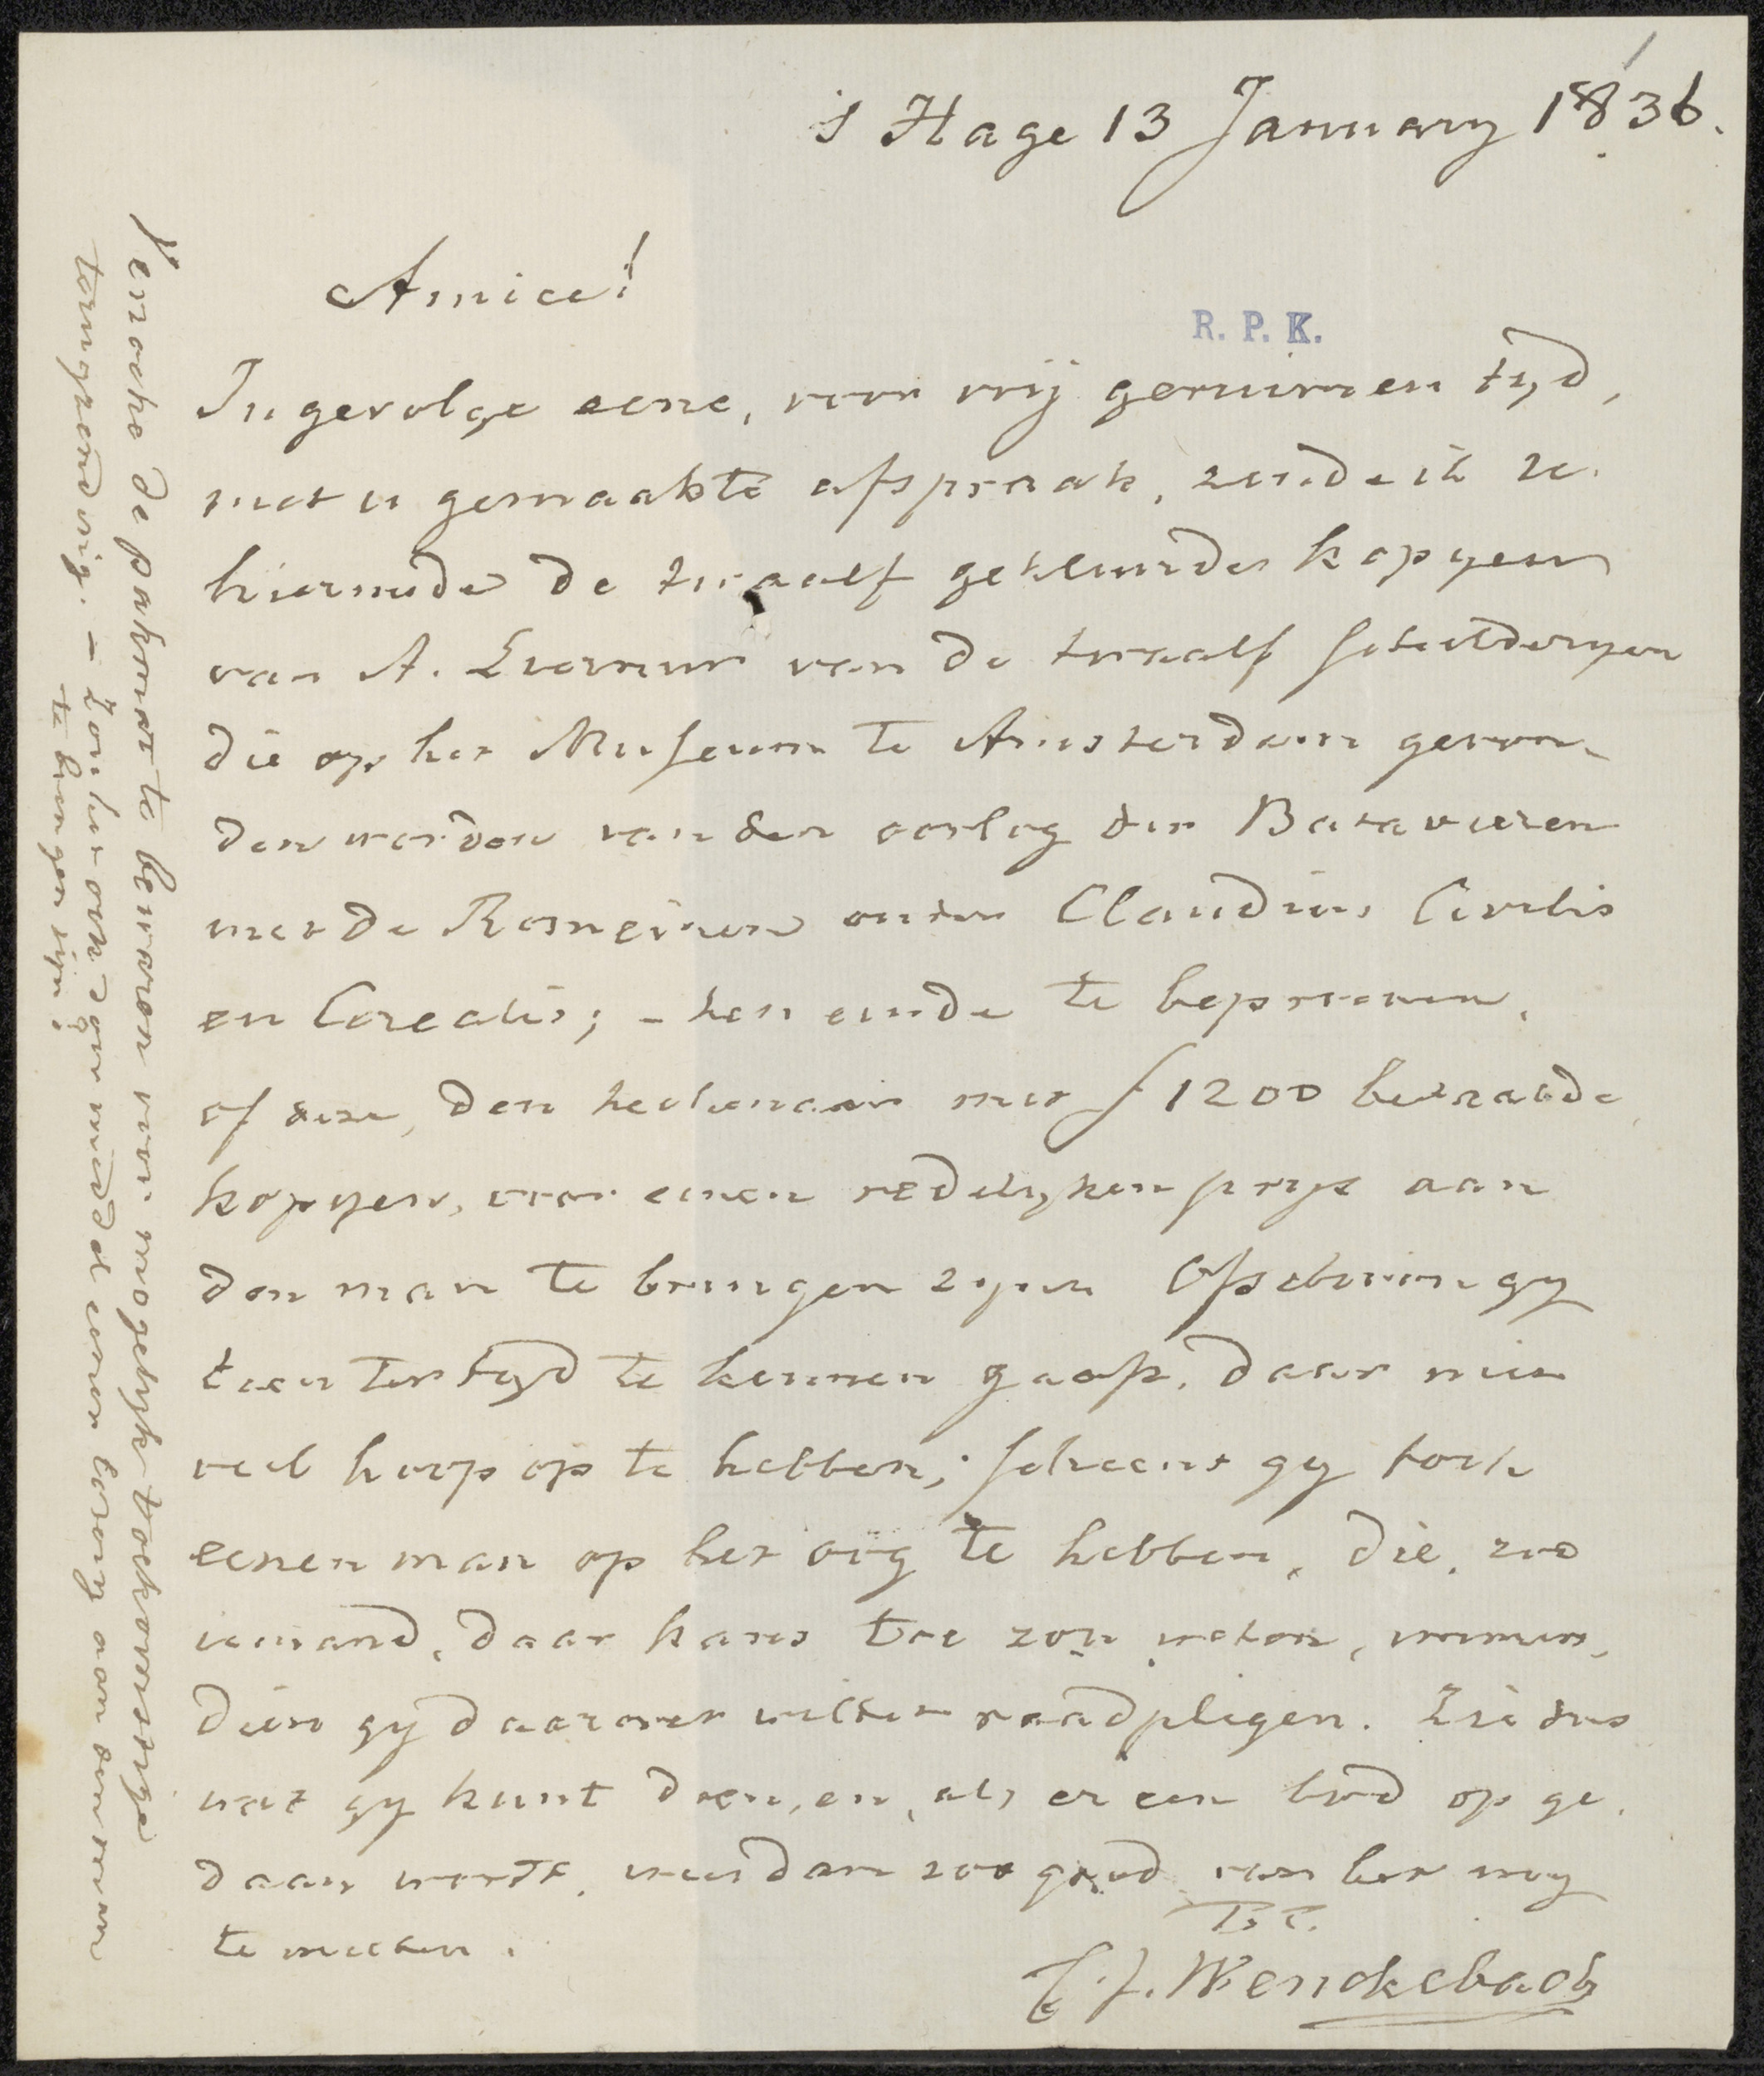 's Hage 13 January 1836.
Amice!
R. P. K.
Ingevolge eene, voor vrij geruimen tyd,
met u gemaakte afspraak, zende ik U.
hiermede de twaalf gekleurde kopyen
van A. Lierneur van de twaalf schilderyen
die op het Museum te Amsterdam gevon-
den worden van den oorlog der Batavieren
met de Romeinen onder Claudius Civilis
en Cerealis; – ten einde te beproeven,
of deze, den teekenaar met f 1200 betaalde
kopyen, voor eenen redelyken prys aan
den man te brengen zyn. Ofschoon gy
toen ter tyd te kennen gaaft, daar niet
veel hoop op te hebben; scheent gy toch
eenen man op het oog te hebben, die, zoo
iemand, daar kans toe zou weten,
dien gy daarover wildet raadplegen. Zie dus
wat gy kunt doen, en, als er een bod op ge-
daan wordt, wees dan zoo goed van het my
te melden.
T. T.
Wenckebach
Verzoeke de pakmat te bewaren voor mogelyke toekomstige
terugzending. – Zou het ook door middel eener lotery aan den man
te brengen zijn?